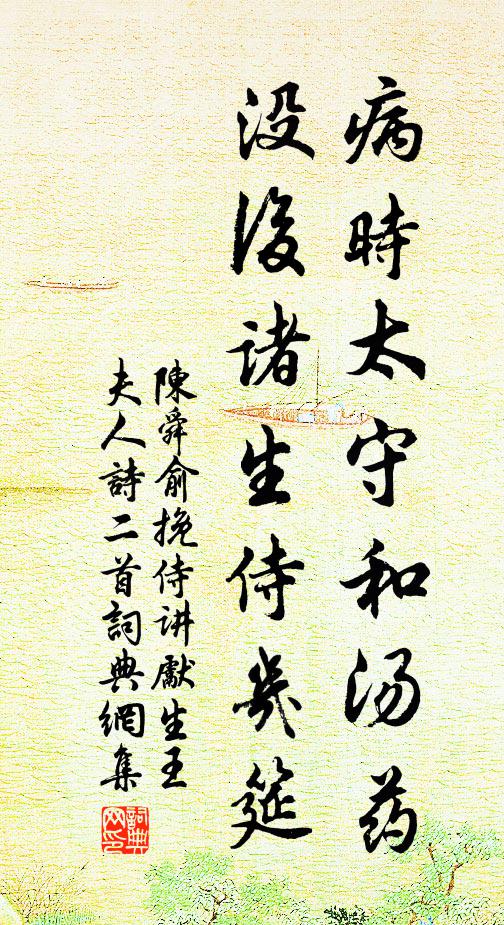 病時太守和汤药
没後诸生侍幾筵
陳舜俞挽侍讲獻生王
夫人詩二首詞典網集
詞典网印